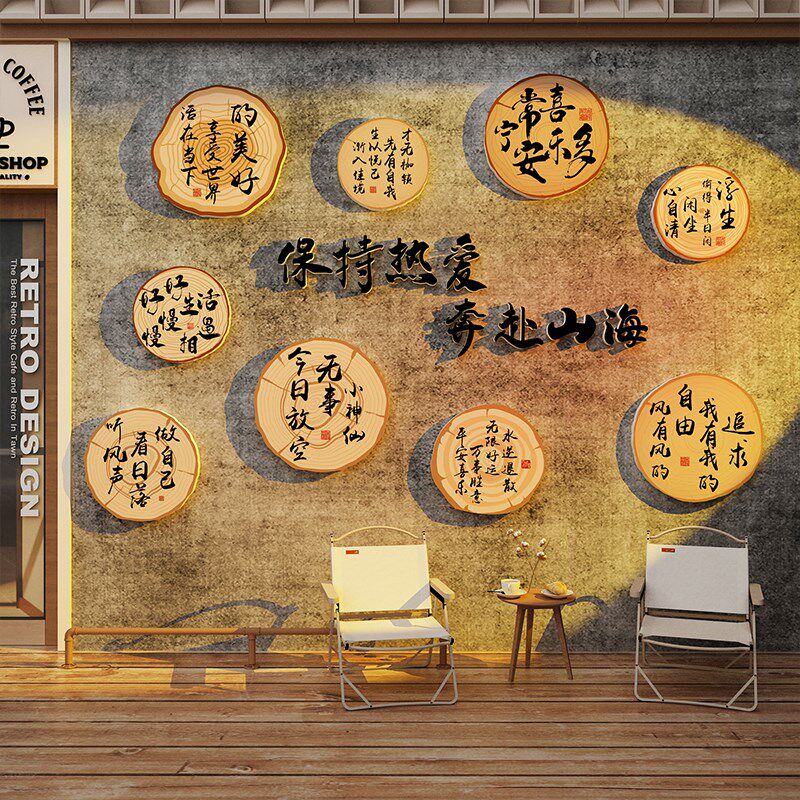 COFFEE
SHOP
QUALITY
RETRO DESIGN
The Best Retro Style Cafe and Retro In Tawn
活在当下
享受世界
的美好
渐入佳境
生以悦己
先有自我
才无枷锁
常安宁
喜乐多
浮生
偷得半日闲
闲坐
心自清
保持热爱
奔赴山海
好好生活
慢慢相遇
今日放空
无事
小神仙
听风声
看日落
做自己
水逆退散
无限好运
万事胜意
平安喜乐
风有风的
自由
我有我的
追求